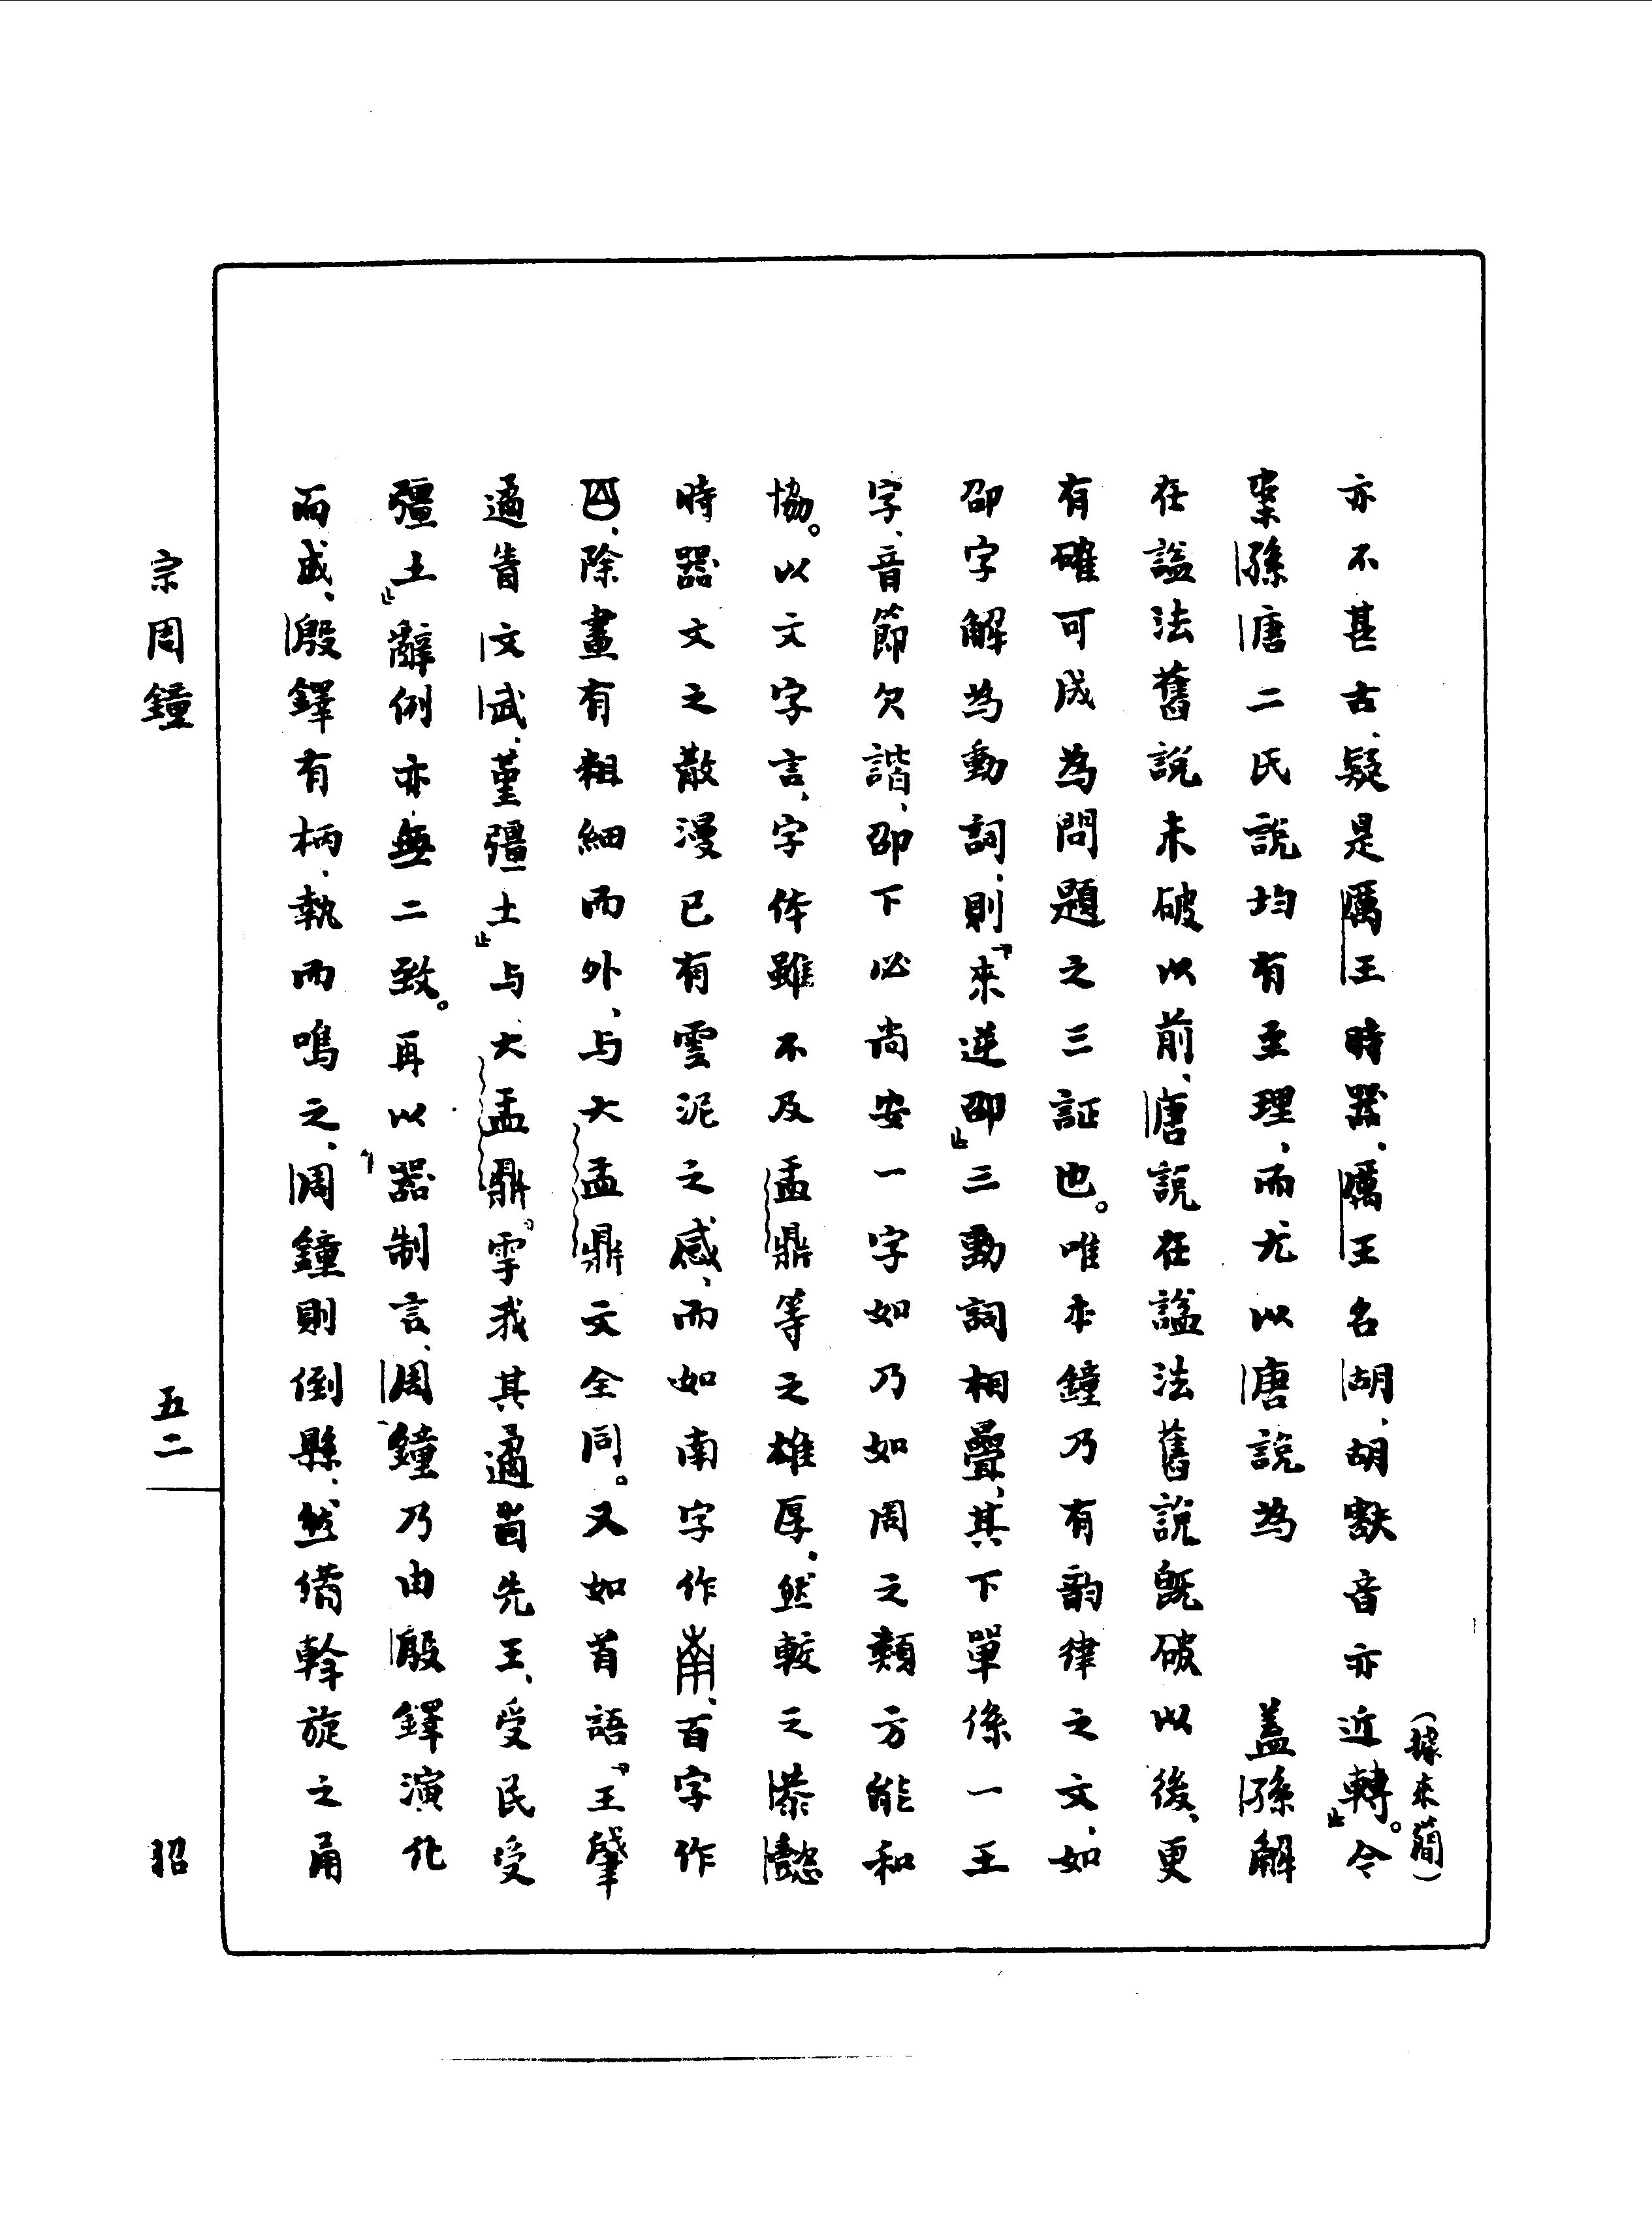 亦不甚古、疑是厲王時器、厲王名胡、胡㝬音亦近轉。」(據來簡)今
案孫唐二氏說均有至理、而尤以唐說為　蓋孫解
在謚法舊說未破以前、唐說在謚法舊說既破以後、更
有確可成為問題之三証也。唯本鐘乃有韵律之文、如
卲字解為動詞、則「來逆卲」三動詞相疊、其下單係一王
字、音節欠諧、卲下必尚安一字如乃如周之類方能和
協。以文字言、字体雖不及盂鼎等之雄厚、然較之恭懿
時器文之散漫已有雲泥之感、而如南字作、百字作
、除畫有粗細而外、与大盂鼎文全同。又如首語「王肇
遹眚文武、堇彊土」与大盂鼎「雩我其遹省先王、受民受
彊土」辭例亦無二致。再以器制言、周鐘乃由殷鐸演化
而成、殷鐸有柄、執而鳴之、周鐘則倒縣、然備榦旋之甬
宗周鐘
五二
昭